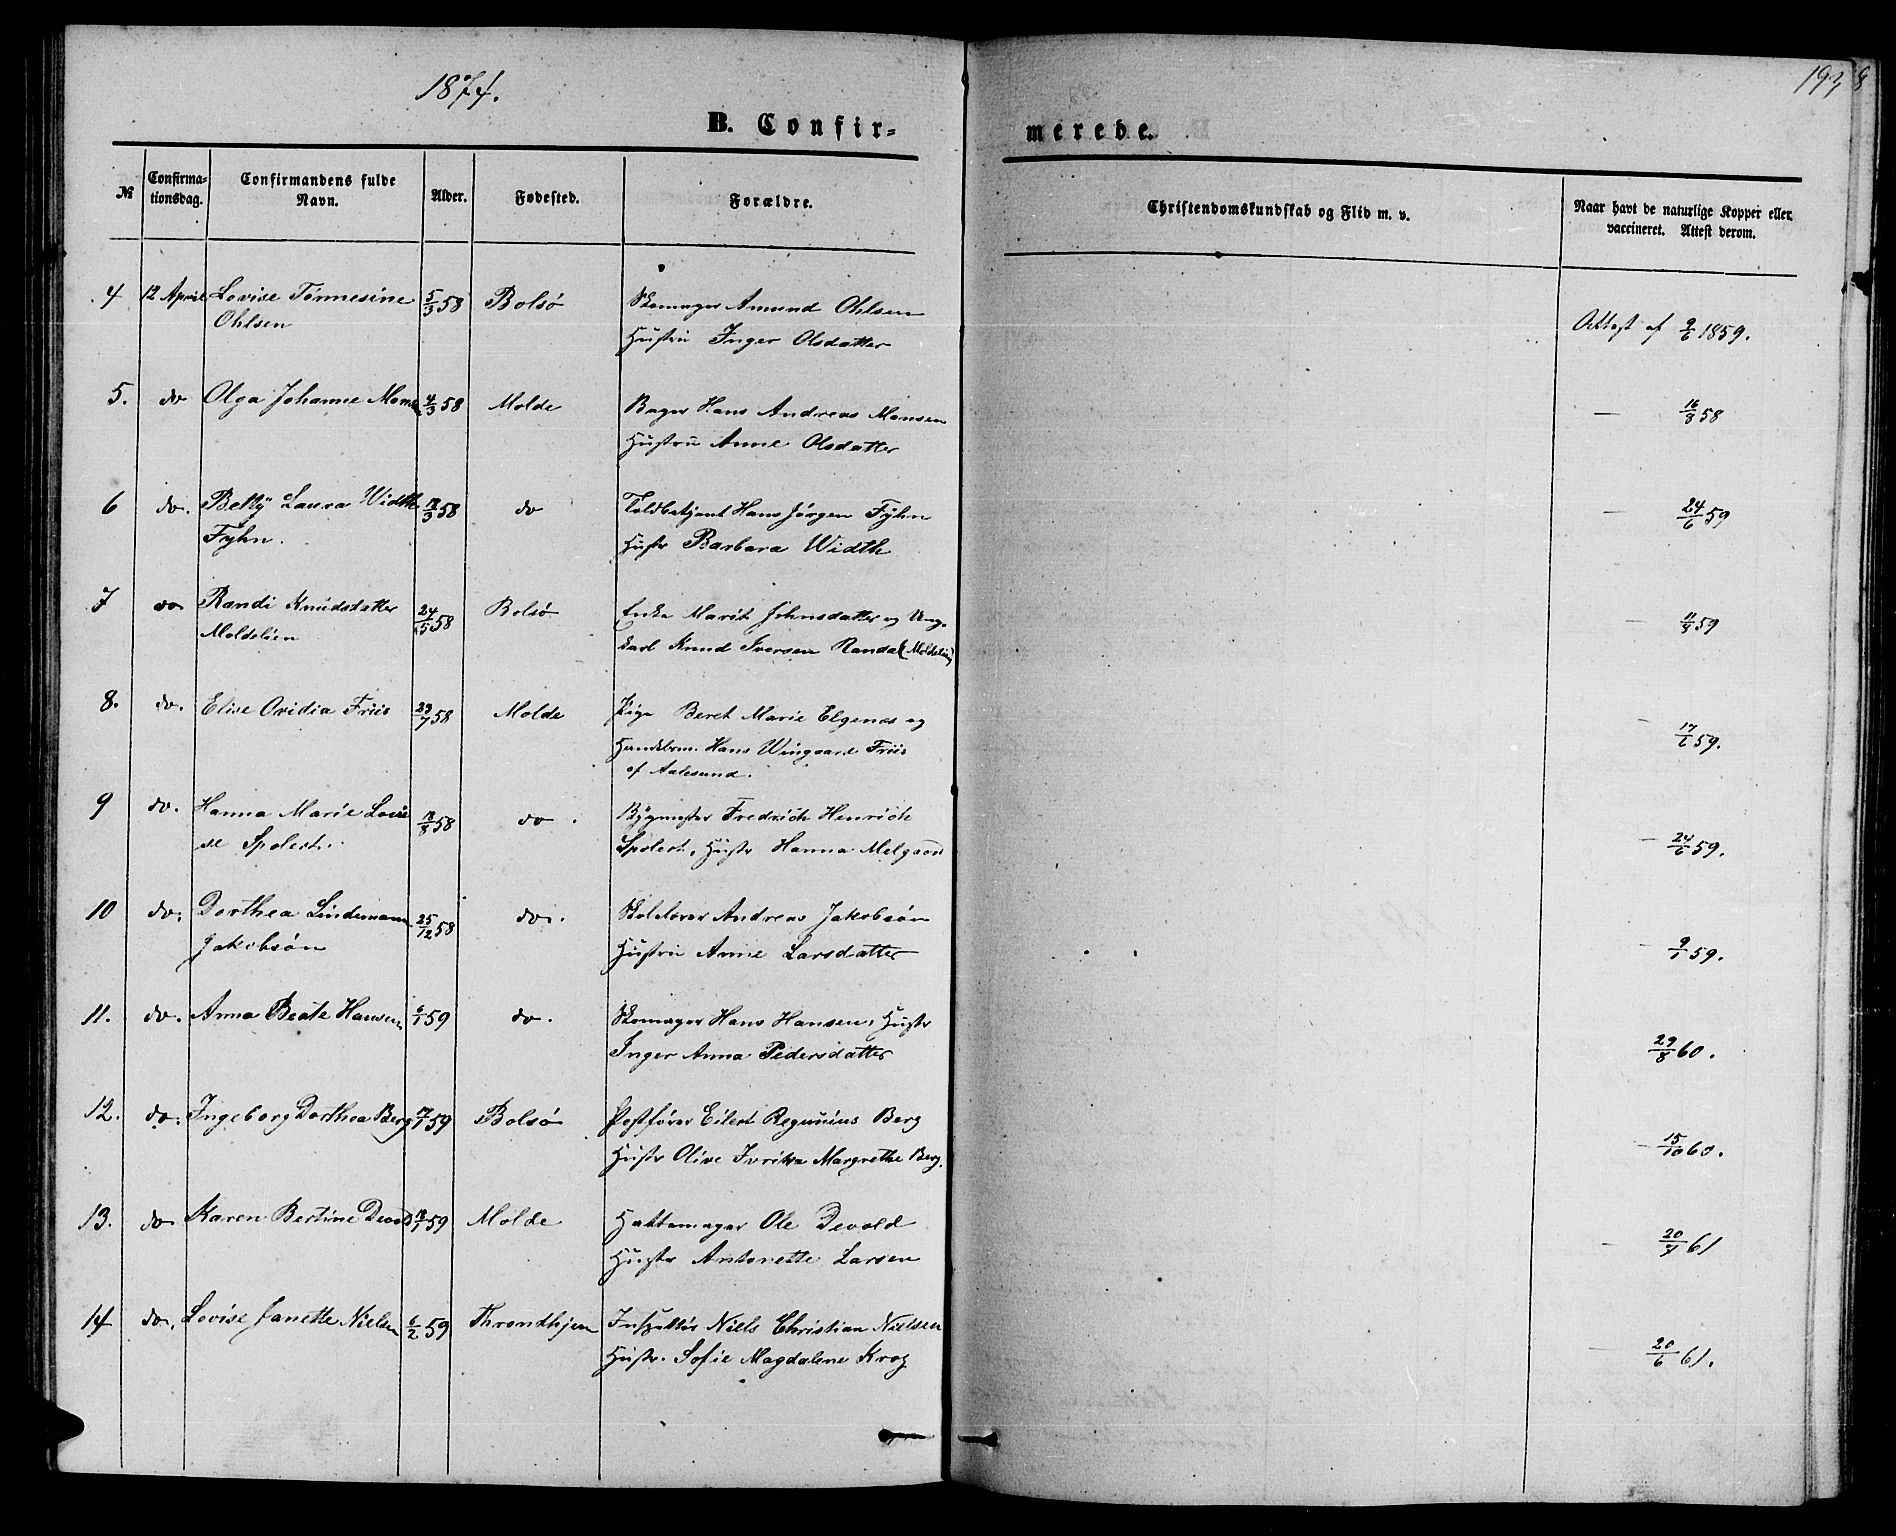 1874.
193
B. Confir=
merede.
№
Confirma-
tionsdag.
Confirmandens fulde
Navn.
Alder.
Fødested.
Forældre.
Christendomskundskab og Flid m. v.
Naar havt de naturlige Kopper eller
vaccineret. Attest derom.
4 12 April Lovise Tønnesine 5/3 58 Bolsø Skomager Amund Ohlsen
Ohlsen Hustru Inger Olsdatter
Attest af 9/6 1859.
5. do Olga Johanne Monsen 4/3 58 Molde Bager Hans Andreas Monsen
Hustru Anne Olsdatter
— 16/8 58
6 do. Betty Laura Width 12/3 58 do Toldbetjent Hans Jørgen Fyhn
Fyhn. Hustr Barbara Width
— 24/6 59
7 do Randi Knudsdatter 24/5 58 Bolsø Enke Marit Johnsdatter og Ung-
Moldelien karl Knud Iversen Randal (Moldelien)
— 11/9 59
8. do. Elise Ovidia Friis 29/7 58 Molde Pige Beret Marie Elgenes og
Handelsbm. Hans Wingaard Friis
af Aalesund.
— 17/6 59.
9 do. Hanna Marie Loui 18/8 58 do. Bygmester Fredrich Henrich
se Spolert. Spolert, Hustr Hanna Melgaard
— 24/6 59.
10 do. Dorthea Lindemann 25/12 58 do. Skolelærer Andreas Jakobsøn
Jakobsøn Hustru Anne Larsdatter
— 9/1 59.
11. do. Anna Beate Hansen 6/1 59 do. Skomager Hans Hansen, Hustr
Inger Anna Pedersdatter
29/8 60.
12. do. Ingeborg Dorthea Berg 17/1 59 Bolsø Postfører Eilert Reguinius Berg
Hustr Olive Fredrikke Margrethe Berg.
— 15/10 60.
13. do Karen Bertine Devold 18/1 59 Molde Hattemager Ole Devold
Hustr Antonette Larsen
— 20/9 61
14 do. Lovise Janette Nielsen 6/2 59 Throndhjem Inspektør Niels Christian Nielsen
Hustr. Sofie Magdalene Krog
— 20/6 61.